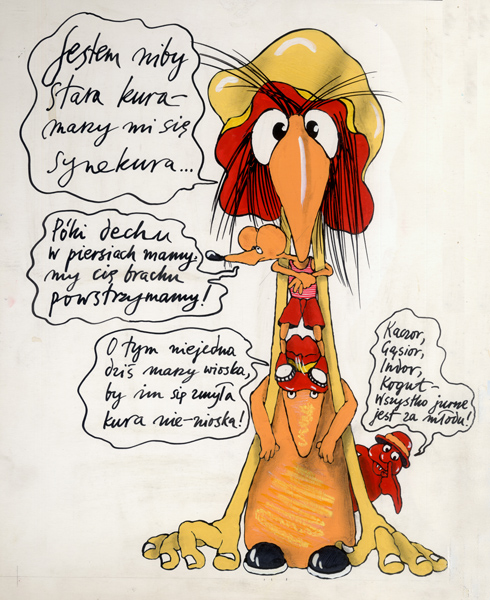 Jestem niby
stara kura-
marzy mi się
synekura...
Póki dechu
w piersiach mamy-
my cię brachu
powstrzymamy!
O tym niejedna
dziś marzy wioska,
by im się zmyła
kura nie-nioska!
Kaczor,
Gąsior,
Indor,
Kogut-
wszystko jurne
jest za młodu!